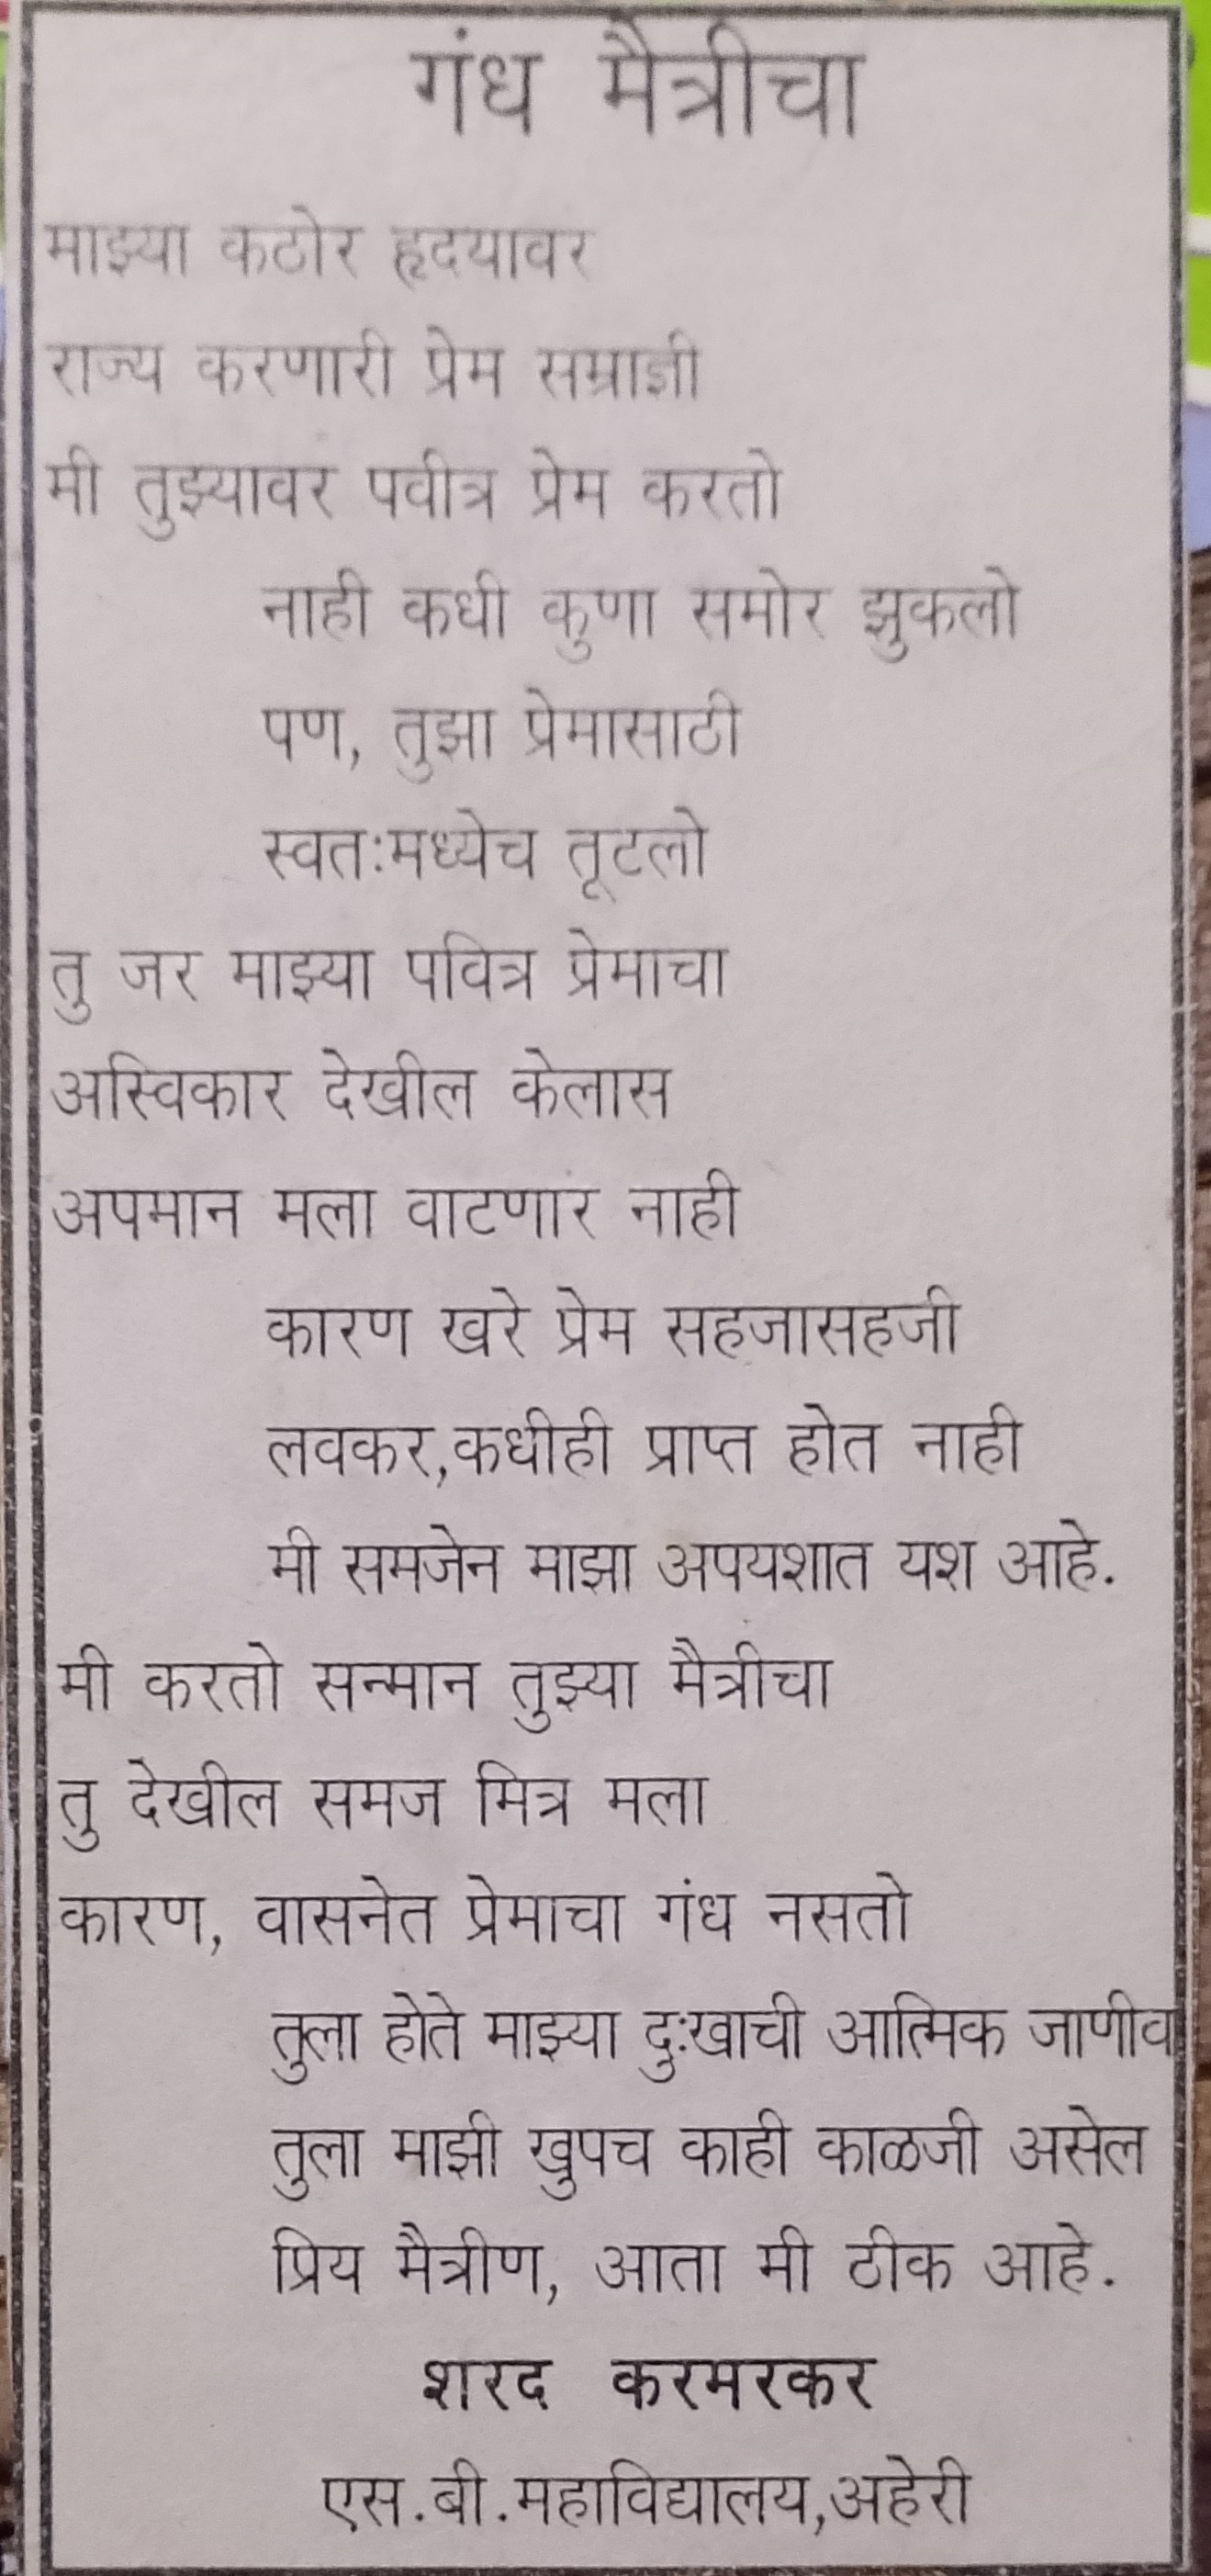 गंध मैत्रीचा
माझ्या कठोर हृदयावर
राज्य करणारी प्रेम सम्राज्ञी
मी तुझ्यावर पवीत्र प्रेम करतो
नाही कधी कुणा समोर झुकलो
पण, तुझा प्रेमासाठी
स्वतःमध्येच तूटलो
तु जर माझ्या पवित्र प्रेमाचा
अस्विकार देखील केलास
अपमान मला वाटणार नाही
कारण खरे प्रेम सहजासहजी
लवकर,कधीही प्राप्त होत नाही
मी समजेन माझा अपयशात यश आहे.
मी करतो सन्मान तुझ्या मैत्रीचा
तु देखील समज मित्र मला
कारण, वासनेत प्रेमाचा गंध नसतो
तुला होते माझ्या दुःखाची आत्मिक जाणीव
तुला माझी खुपच काही काळजी असेल
प्रिय मैत्रीण, आता मी ठीक आहे.
शरद करमरकर
एस.बी.महाविद्यालय,अहेरी